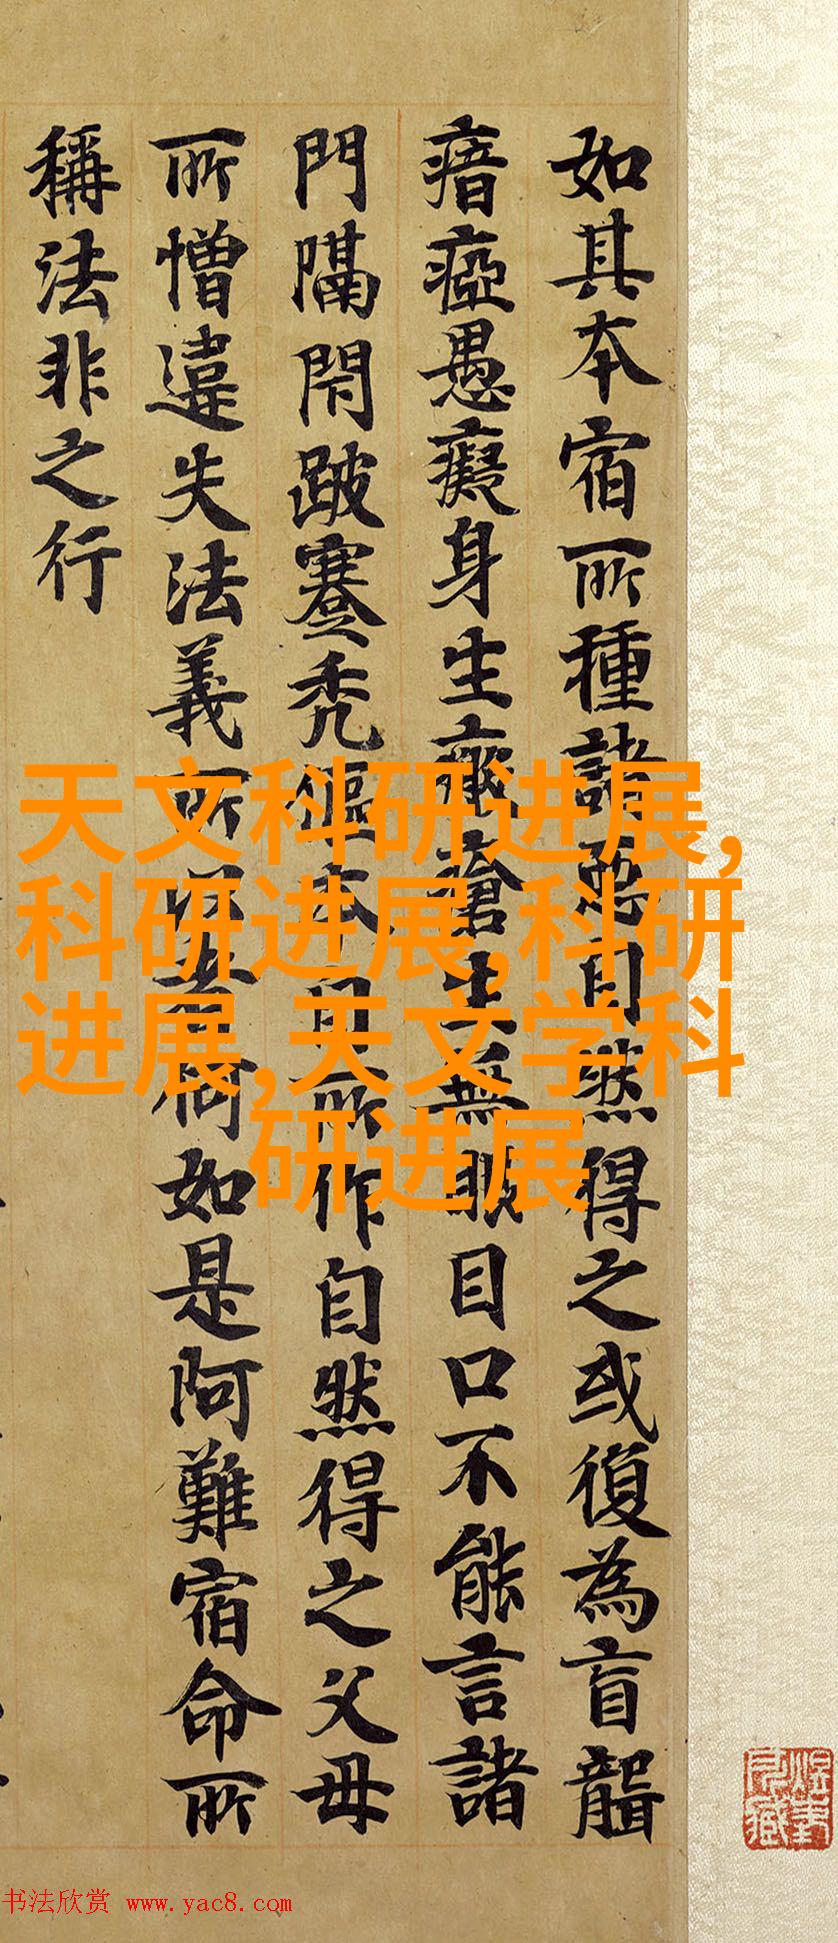 如其本宿所種諸惡自然得之或復為盲聾
瘖瘂愚癡身生瘡生無眼目口不能言諸
門隔閇跛蹇禿傴本自所作自然得之父母
所憎違失法義所以者何如是阿難宿命所
稱法非之行
天文科研进展,
科研进展,科研
进展,天文学科
研进展
书法欣赏 www.yac8.com